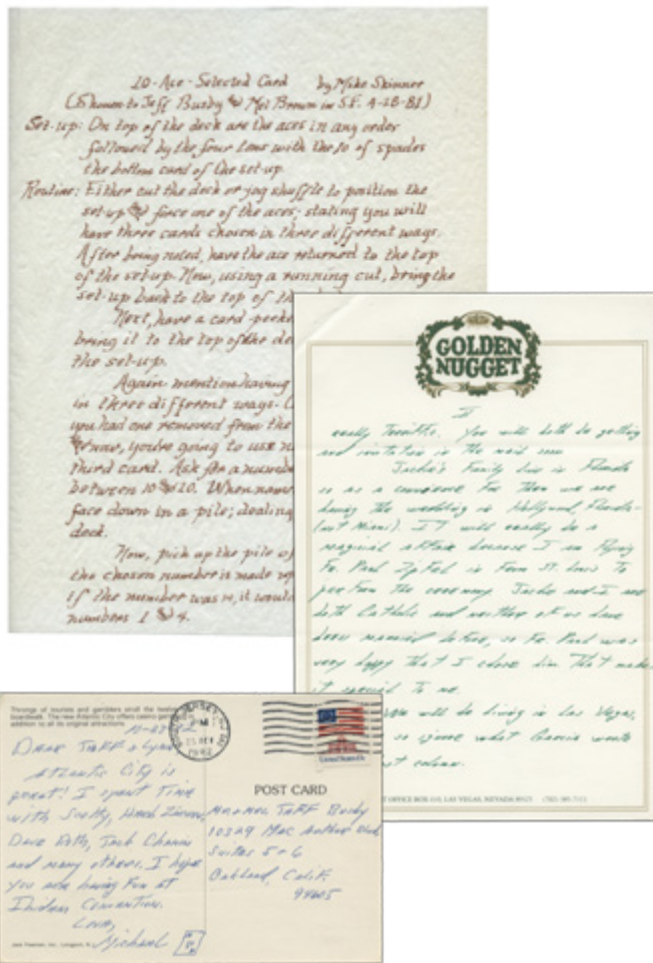 10-Ace-Selected Card by Mike Skinner
(Shown to Jeff Busby & Mel Brown in S.F. 4-18-81)
Set-up: On top of the deck are the aces in any order
followed by the four tens with the 10 of spades
the bottom card of the set-up.
Routine: Either cut the deck or jog shuffle to position the
set-up & force one of the aces; stating you will
have three cards chosen in three different ways.
After being noted, have the ace returned to the top
of the set-up. Now, using a running cut, bring the
set-up back to the top of
Next, have a card peeked
bring it to the top of the
the set-up.
Again mention having
in three different ways.
you had one removed from the
& now, you're going to use
third card. Ask for a number
between 10 & 20. When
face down in a pile; dealing
deck.
Now, pick up the pile
the chosen number is made
if the number was
numbers 1 & 4.
GOLDEN
NUGGET
really terrific. You will both be getting
an invitation in the mail soon
Jackie's family live in Florida
so as a convenience for them we are
having the wedding in Hollywood, Florida-
(not Miami). IT will really be a
magical affair because I am flying
Fr. Paul in from St. Louis to
perform the ceremony. Jackie and I are
both Catholic and neither of us have
been married before, so Fr. Paul was
very happy that I chose him. That makes
it special to me.
will be living in Las Vegas,
OFFICE BOX 610, LAS VEGAS, NEVADA 89125 (702) 385-7111
Throngs of tourists and gamblers stroll the
boardwalk. The new Atlantic City offers casino
addition to all its original attractions.
Dear Jeff &
Atlantic City is
great! I spent time
with Scotty,
Dave Roth, Jack Chanin
and many others. I hope
you are having fun at
Convention.
Love,
Michael
POST CARD
Mr & Mrs Jeff Busby
10329 Mac Arthur Blvd
Suites 5 + 6
Oakland, Calif.
94605